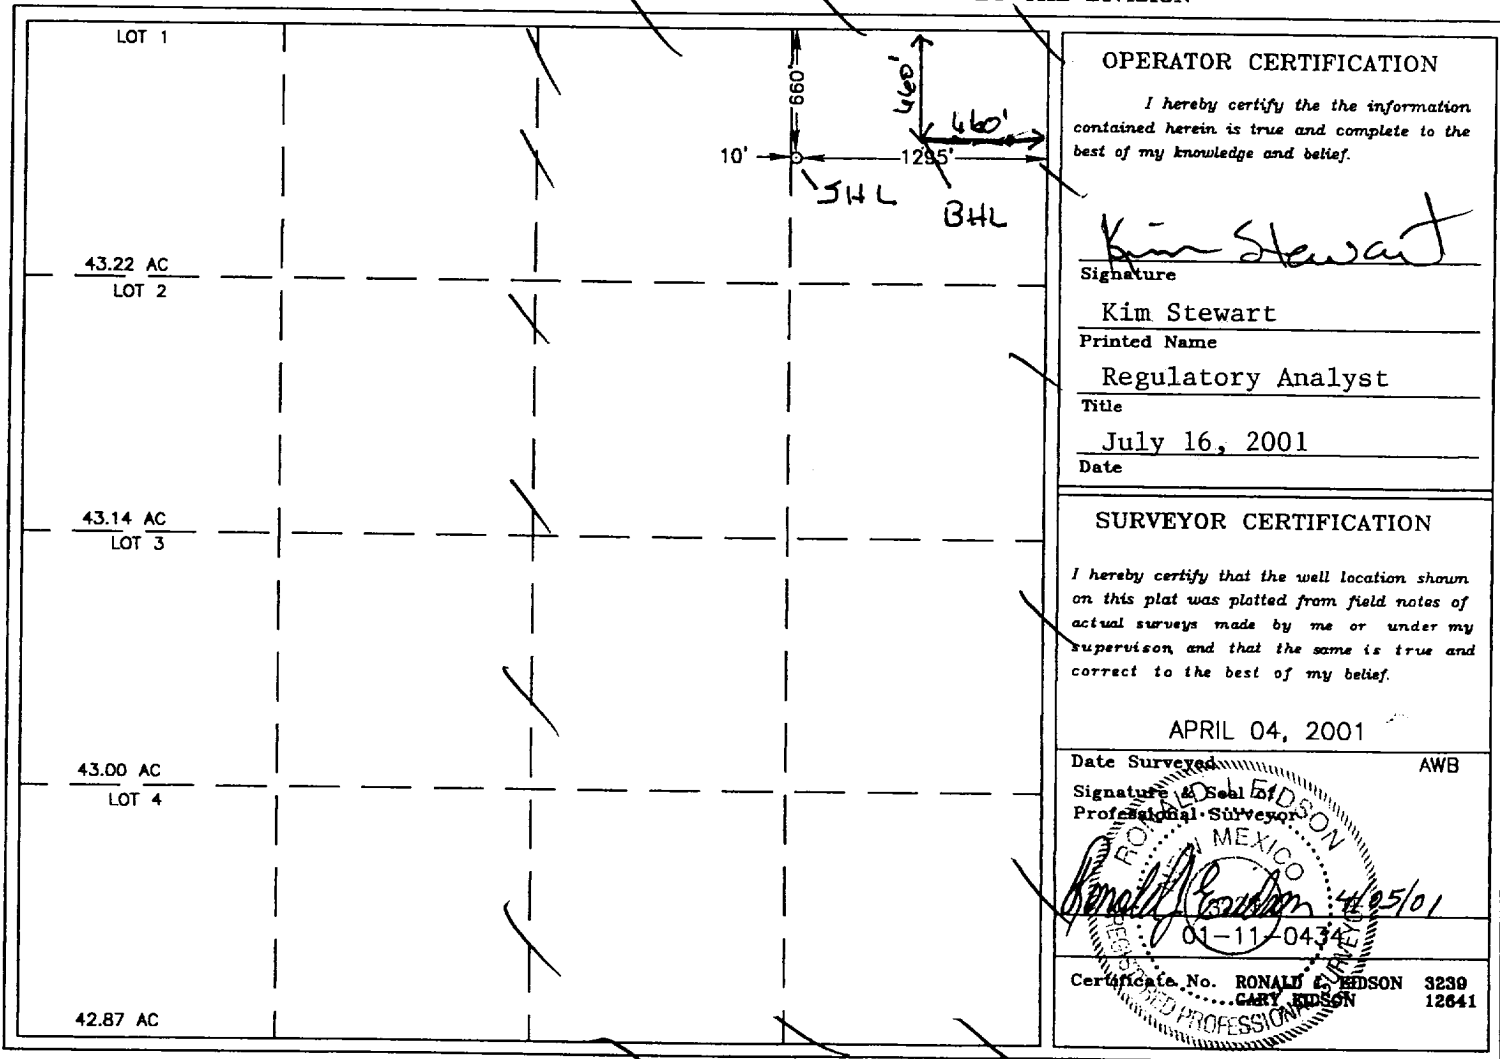 LOT 1
660'
460'
460'
10'
1295'
SHL
BHL
43.22 AC
LOT 2
43.14 AC
LOT 3
43.00 AC
LOT 4
42.87 AC
OPERATOR CERTIFICATION
I hereby certify the the information
contained herein is true and complete to the
best of my knowledge and belief.
Kim Stewart
Signature
Kim Stewart
Printed Name
Regulatory Analyst
Title
July 16, 2001
Date
SURVEYOR CERTIFICATION
I hereby certify that the well location shown
on this plat was plotted from field notes of
actual surveys made by me or under my
supervison, and that the same is true and
correct to the best of my belief.
APRIL 04, 2001
Date Surveyed
AWB
Signature & Seal of
Professional Surveyor
RONALD J EIDSON
MEXICO
REGISTERED PROFESSIONAL SURVEYOR
Ronald J Eidson 4/05/01
01-11-0434
Certificate No. RONALD J. EIDSON 3239
GARY EIDSON 12641